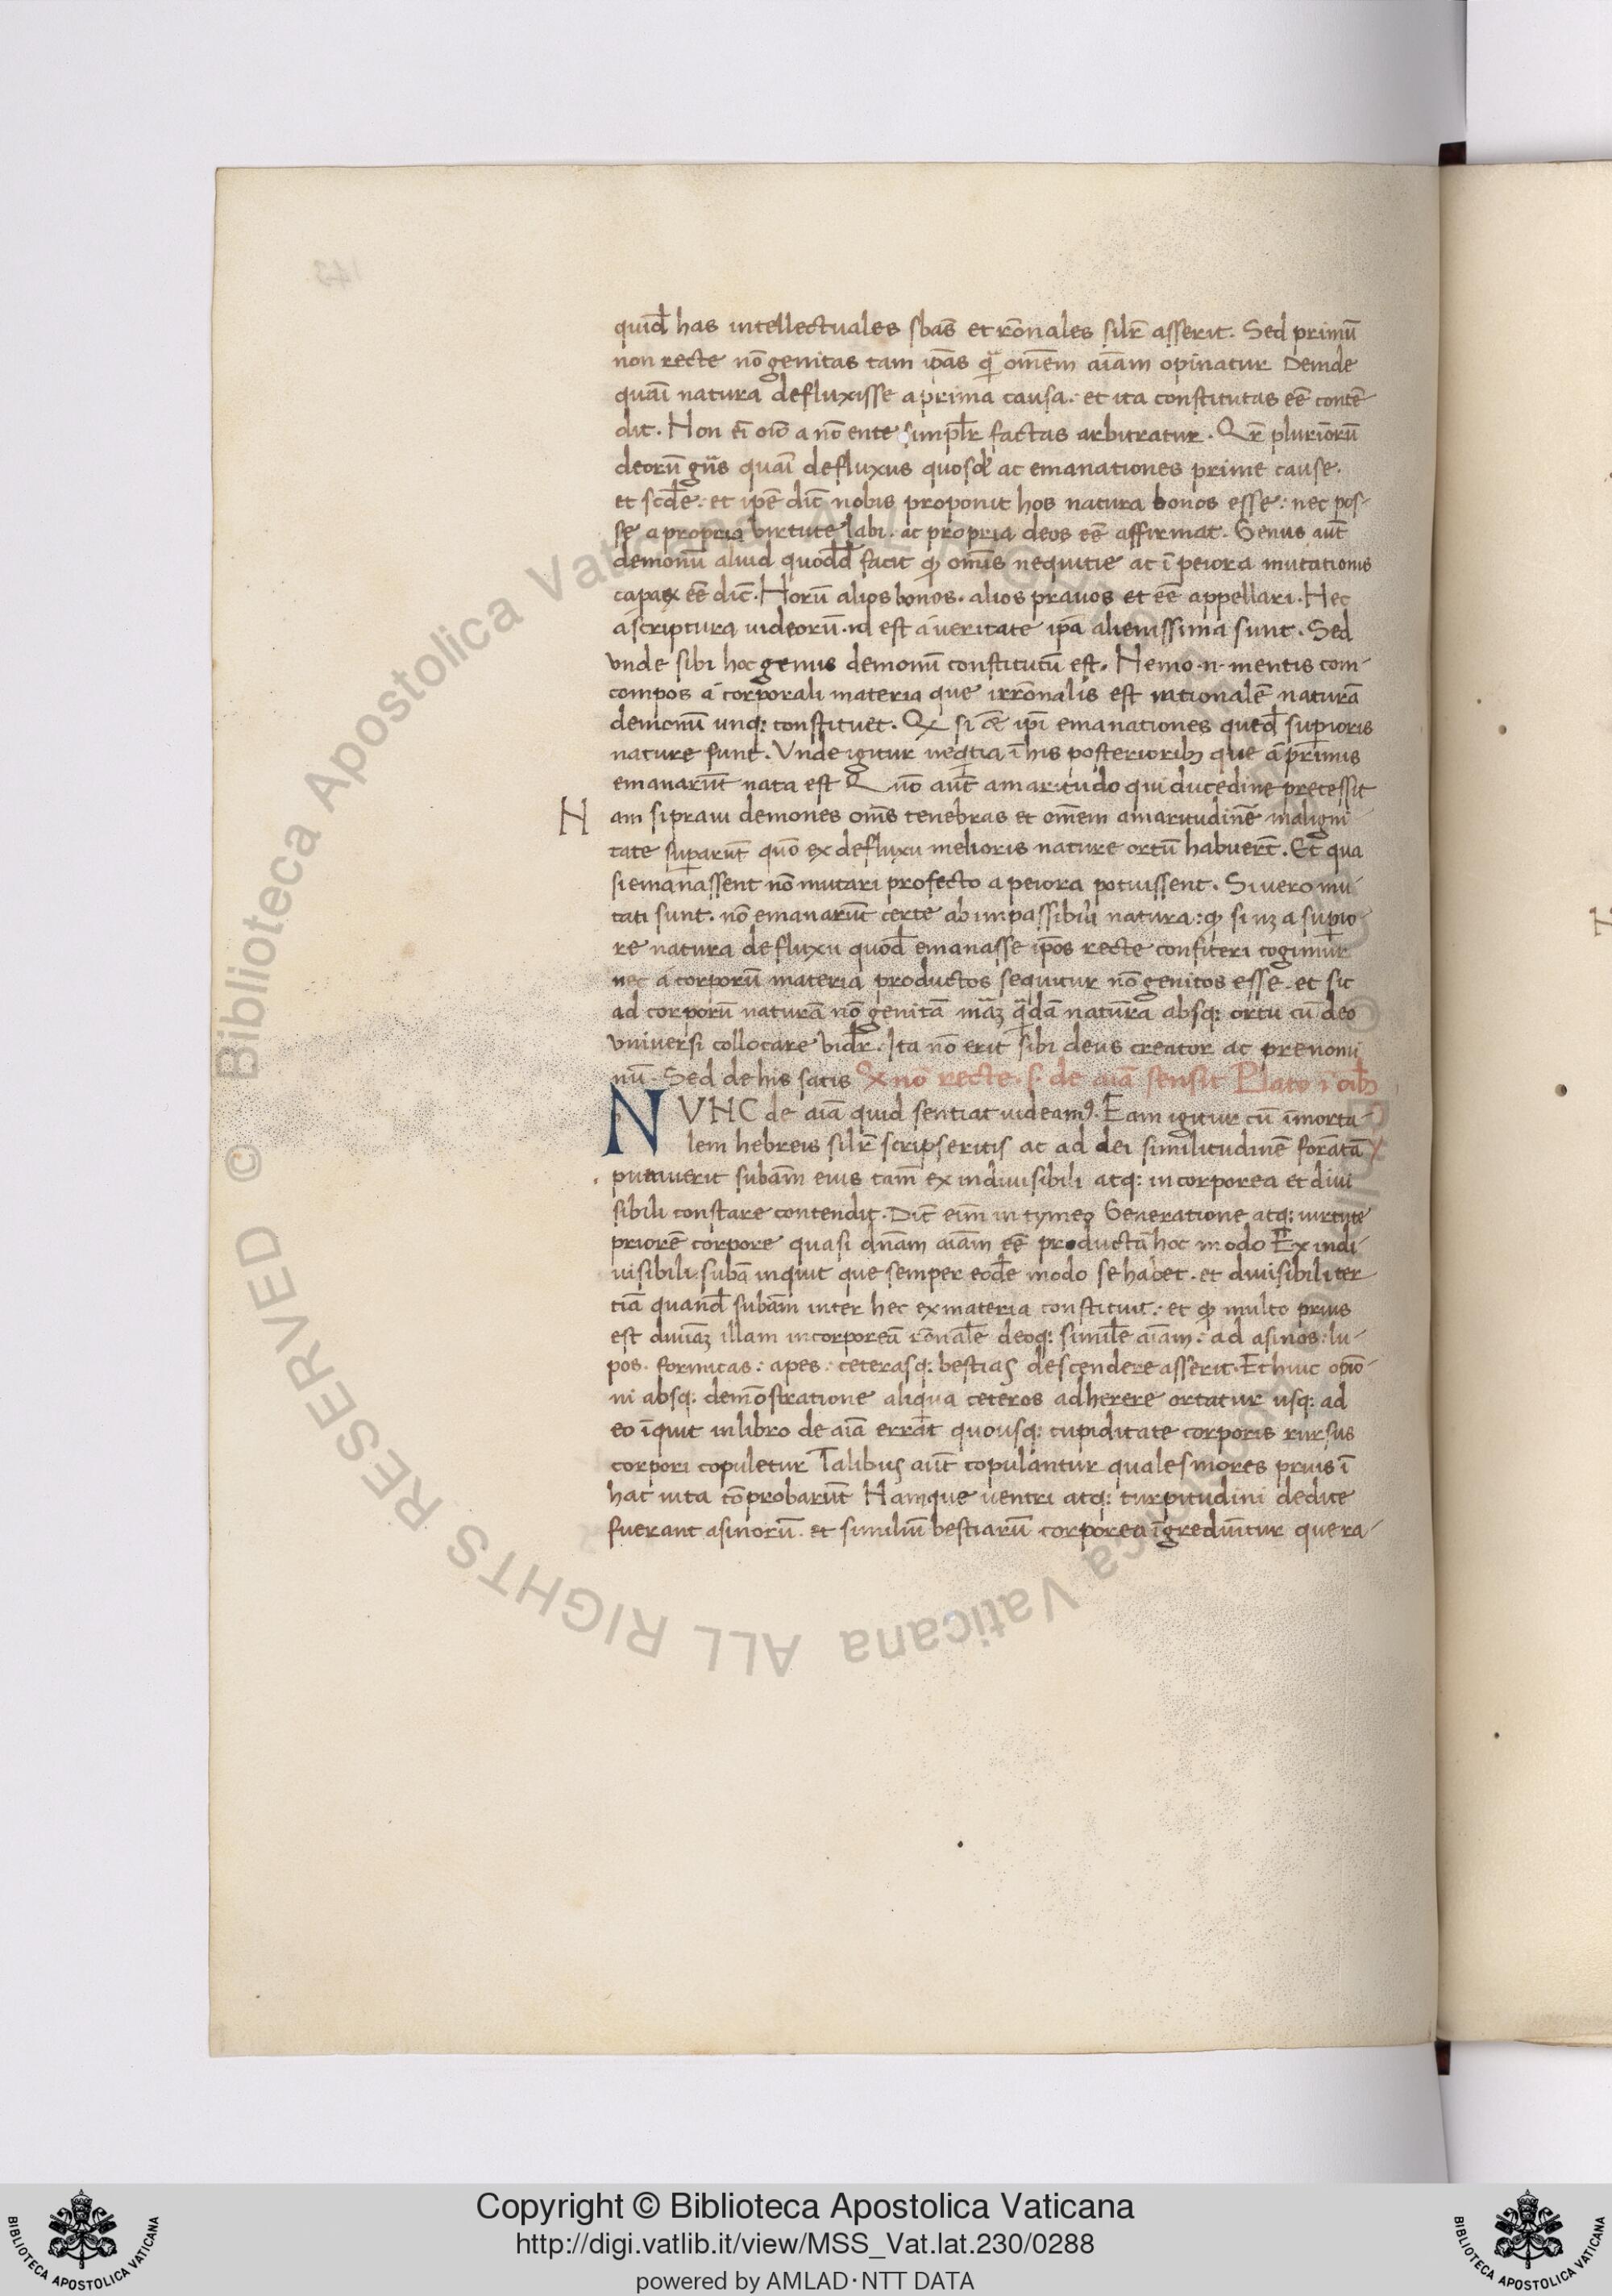 quid̄ has intellectuales sbās et rōnales silr̄ asserit. Sed primū
non recte nō genitas tam ip̄as q̄ om̄em aīam opinatur Deinde
quāı natura defluxisse a prima causa. et ita constitutas eē̄ contē-
dit. Non eī oīo a nō ente simpl̄r factas arbitratur. Qr̄ plurīorū
deorū gn̄s quāı defluxus quosd̄ ac emanationes prime cause.
et scd̄e. et ip̄e dic̄ nobis proponit hos natura bonos esse: nec pos-
se a propria virtute labi. ac propria deos eē̄ affirmat. Genus aūt
demonū aliud quodd̄ facit qđ om̄is nequitie ac ī peiora mutationis
capax eē̄ dic̄. Horū alios bonos. alios prauos et eē̄ appellari. Hec
a scriptura iudeorū. id est a ueritate ip̄a alienissima sunt. Sed
vnde sibi hoc genus demonū constitutū est. Nemo .n. mentis com-
compos a corporali materia que irrōnalis est rationalē naturā
demonū unq: constituet. Qđ si ip̄i emanationes qued̄ sup̄ioris
nature sunt. Vnde igitur neq̄tia ī his posteriorib; que a primis
emanarūt nata est Quō aūt amaritudo qui dulcedine precessit
Nam si praui demones om̄s tenebras et om̄em amaritudinē maligni-
tate sup̄arūt quō ex defluxu melioris nature ortū habuert̄. Et qua
si emanassent nō mutari profecto a peiora potuissent. Si uero mu-
tati sunt. nō emanarūt certe ab impassibili natura: qđ si nȝ a sup̄io-
re natura defluxu quod̄ emanasse ip̄os recte confiteri cogimur
nec a corporū materia productos sequitur nō genitos esse. et sic
ad corporū naturā nō genitā māȝ q̄dā natūra absq: ortu cū deo
vniuersi collocare vid̄r. Ita nō erit sibi deus creator ac prenomi
nū. Sed de his satis Qđ nō recte. s. de aīa sensit Plato ī oīb;
NVNC de aīa quid sentiat uideam9. Eam igitur cū īmorta-
lem hebreis silr̄ scripseritis ac ad dei similitudinē forātā
putauerit subām eius tam̄ ex indiuisibili atq: incorporea et diui
sibili constare contendit. Dic̄ eim̄ in tymeo Generatione atq: uirtute
priorē corpore quasi dn̄am aīam eē̄ productā hoc modo Ex indi-
uisibili subā inquit que semper eod̄e modo se habet. et diuisibiliter
tiā quand̄ subām inter hec ex materia constituit. et qđ multo prius
est diuiāȝ illam incorporeā rōnal̄e deoq: simil̄e aīam: ad asinos: lu-
pos. formicas: apes: ceterasq: bestias descendere asserit. Et huic opīo-
ni absq: demōstratione aliqua ceteros adherere ortatur usq: ad
eo īquit in libro de aīa errāt quousq: cupiditate corporis rursus
corpori copuletur Talibus aūt copulantur quales mores prius ī
hac uita cō̄probarūt Namque uentri atq: turpitudini dedite
fuerant asinorū. et similiū bestiarū corporea īgrediūtur que ra-
Copyright © Biblioteca Apostolica Vaticana
http://digi.vatlib.it/view/MSS_Vat.lat.230/0288
powered by AMLAD·NTT DATA
BIBLIOTECA APOSTOLICA VATICANA
BIBLIOTECA APOSTOLICA VATICANA
© Biblioteca Apostolica Vaticana ALL RIGHTS RESERVED